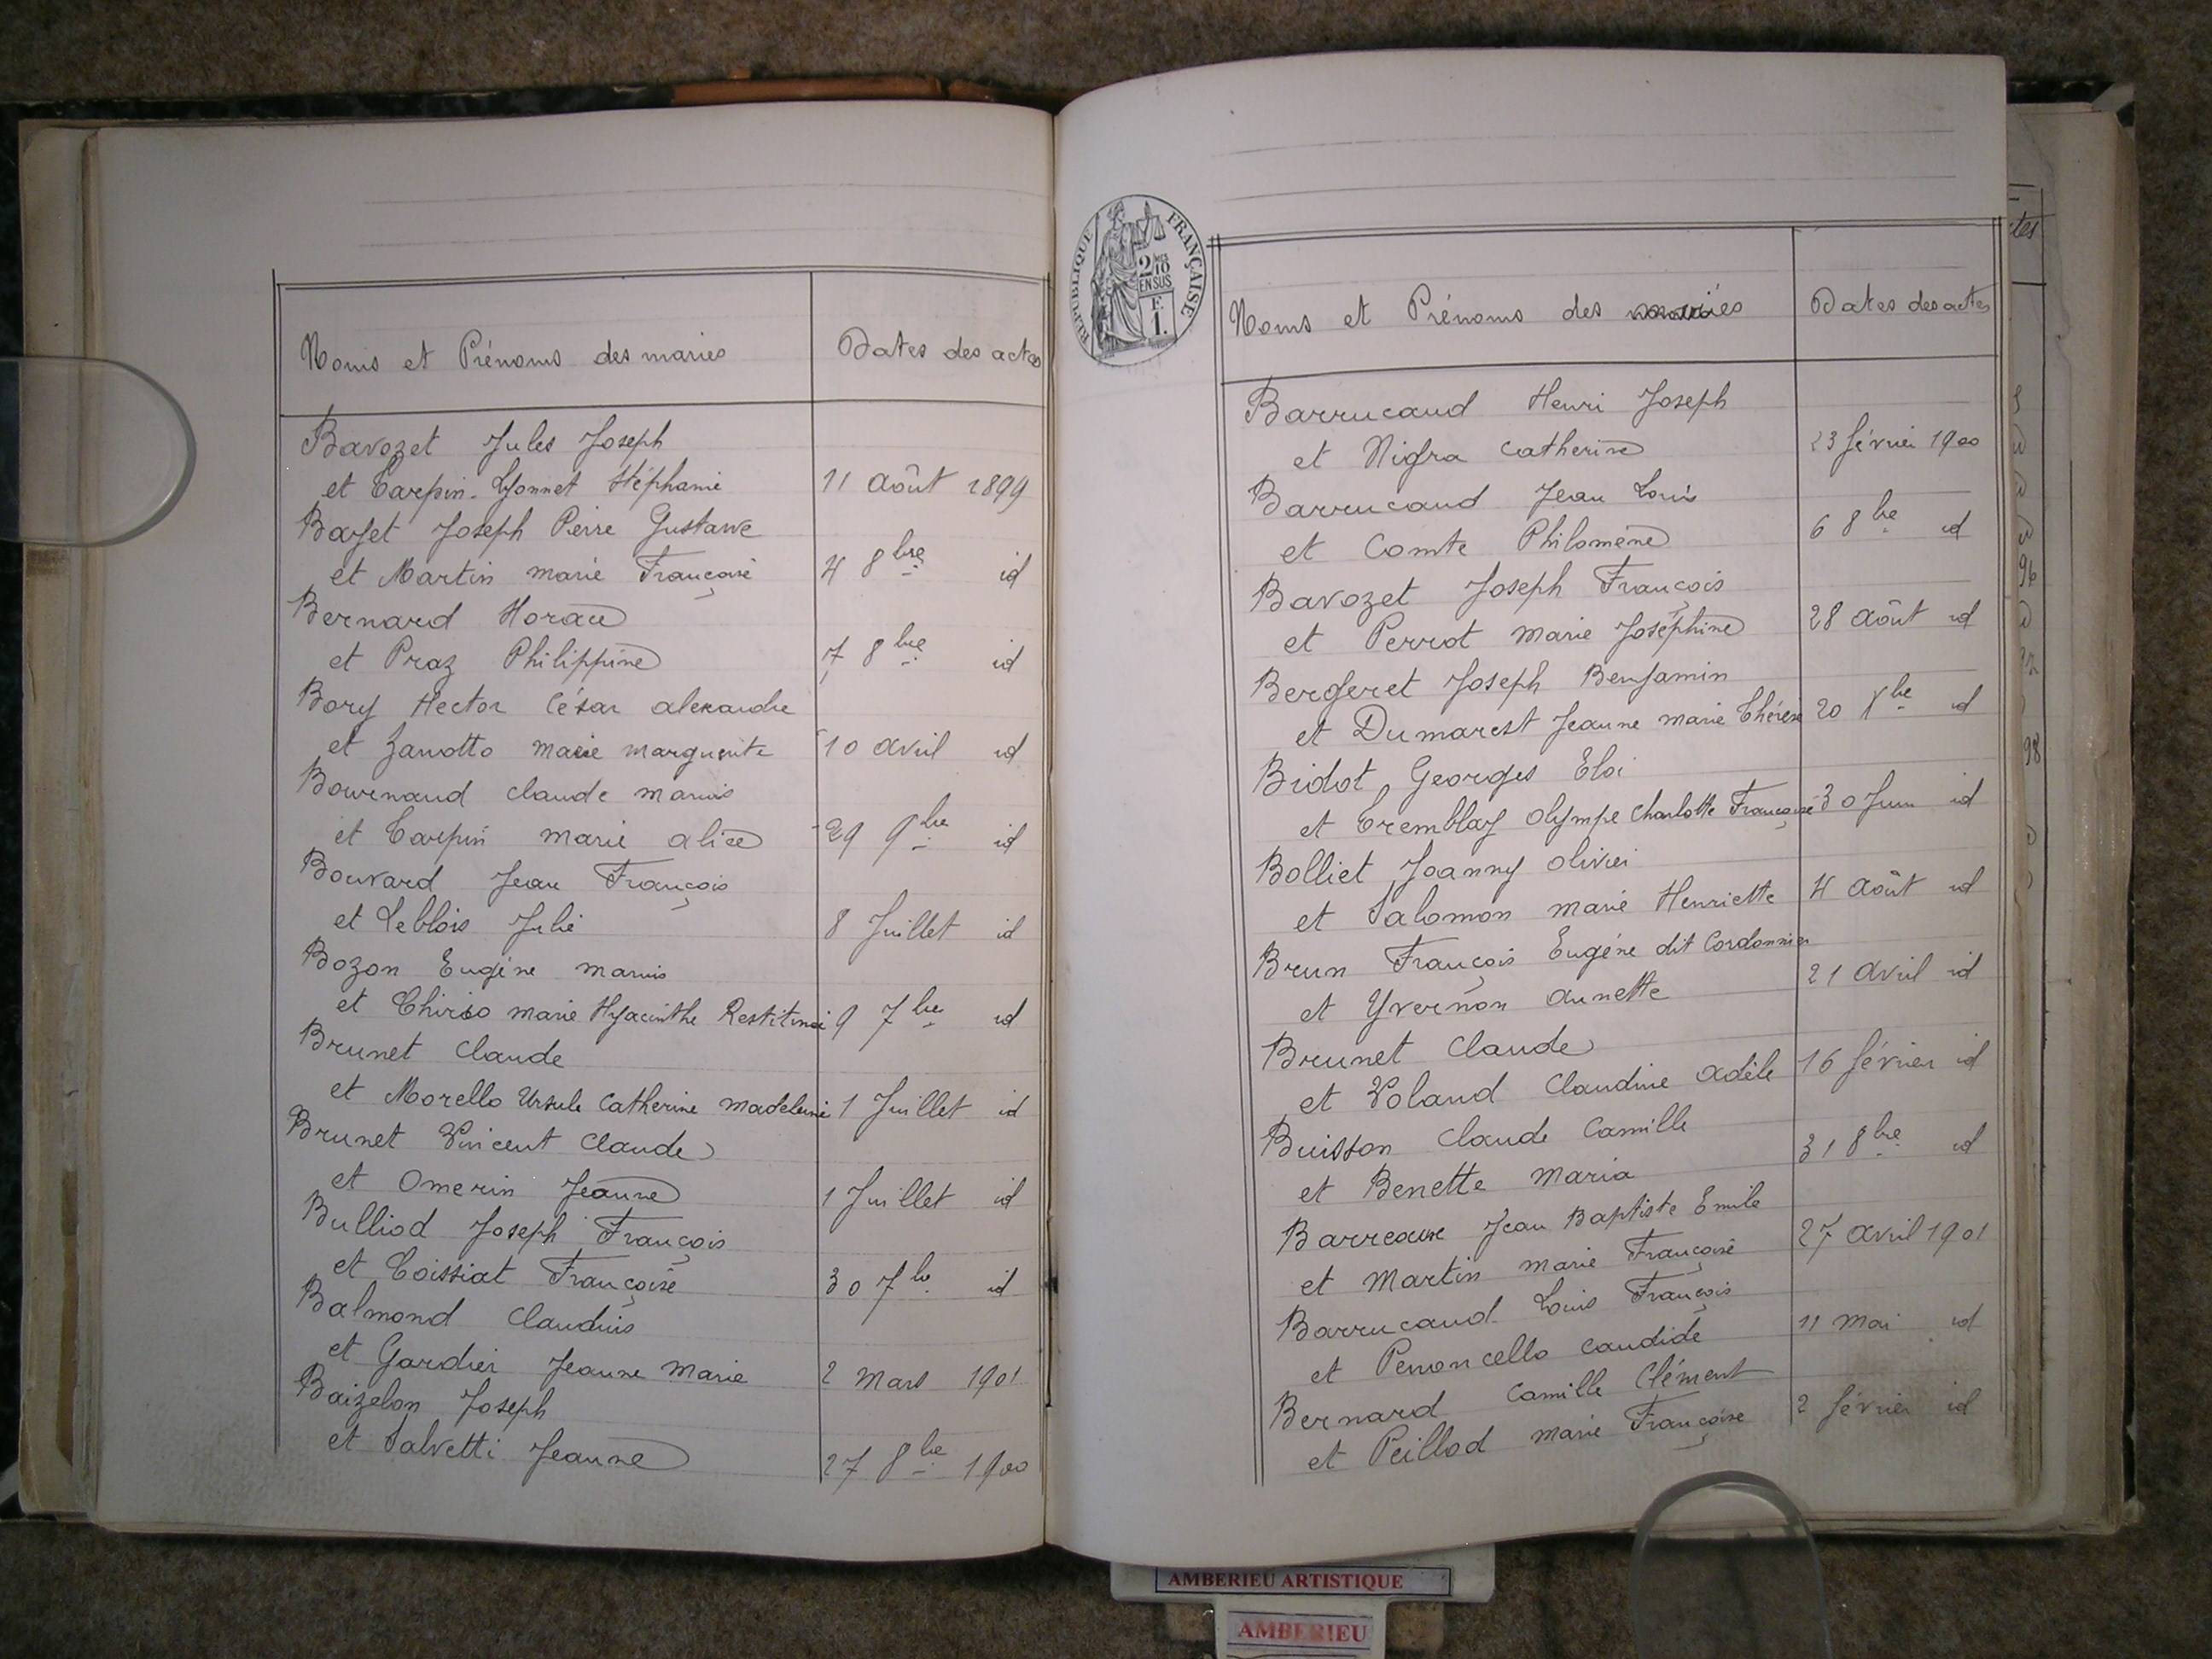 Noms et Prénoms des mariés
Dates des actes
Bavozet Jules Joseph
et Carpin-Lyonnet Stéphanie 11 Août 1899
Bayet Joseph Pierre Gustave
et Martin marie Françoise 4 8bre id
Bernard Horace
et Praz Philippine 7 8bre id
Bory Hector César alexandre
et Zanotto marie marguerite 10 avril id
Bournaud claude marius
et Carpin marie alice 29 9bre id
Bouvard Jean François
et Leblois Julie 8 Juillet id
Bozon Eugène marius
et Chirio marie Hyacinthe 9 7bre id
Brunet Claude
et Morello Ursule Catherine madeleine 1 Juillet id
Brunet Vincent Claude
et Omerin Jeanne 1 Juillet id
Bulliod Joseph François
et Coissiat Françoise 30 7bre id
Balmond Claudius
et Gardier Jeanne Marie 2 Mars 1901
Baizelon Joseph
et Salvetti Jeanne 27 8bre 1900
RÉPUBLIQUE FRANÇAISE
2/10
EN SUS
F.
1.
Noms et Prénoms des mariés
Dates des actes
Barrucand Henri Joseph
et Nigra Catherine 23 février 1900
Barrucand Jean Louis
et Comte Philomène 6 8bre id
Bavozet Joseph François
et Perrot Marie Joséphine 28 Août id
Bergeret Joseph Benjamin
et Dumarest Jeanne marie Thérèse 20 Xbre id
Bidot Georges Eloi
et Tremblay Olympe Charlotte Françoise 30 Juin id
Bolliet Joanny Olivier
et Salomon Marie Henriette 4 Août id
Brun François Eugène dit Cordonnier
et Yvernon Annette 21 Avril id
Brunet Claude
et Voland Claudine Adèle 16 février id
Buisson Claude Camille
et Benette Maria 31 8bre id
Barreaux Jean Baptiste Emile
et Martin marie Françoise 27 Avril 1901
Barrucand Louis François
et Penoncello Candide 11 Mai id
Bernard Camille Clément
et Peillod marie Françoise 2 février id
AMBERIEU ARTISTIQUE
AMBERIEU